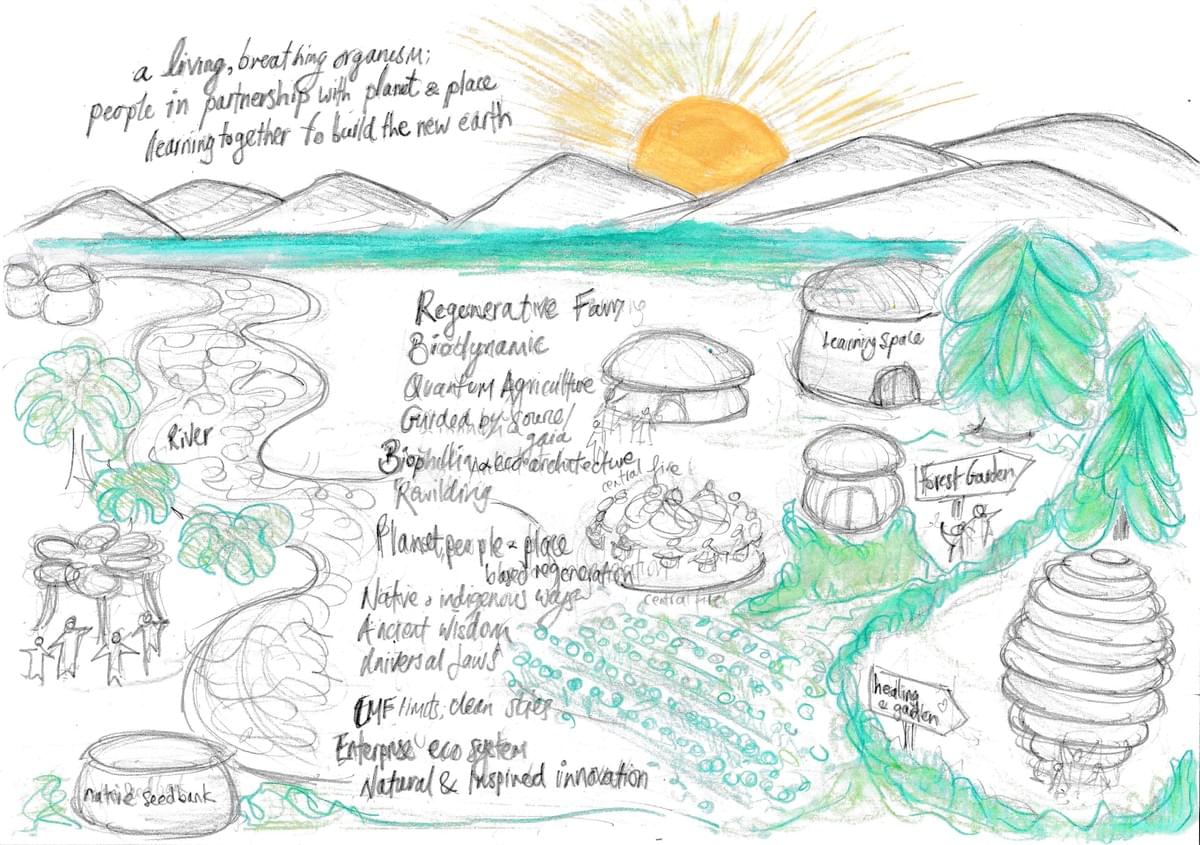 a living, breathing organism;
people in partnership with planet & place
learning together to build the new earth
Regenerative Farming
Biodynamic
Quantum Agriculture
Guided by Source/
gaia
Biophillia & eco architecture
Rewilding
Planet, people & place
based regeneration
Native & indigenous ways
Ancient Wisdom
Universal Laws
EMF limits, clean skies
Enterprise eco system
Natural & Inspired innovation
River
Native Seedbank
Learning Space
central fire
central fire
Forest Garden
healing
garden